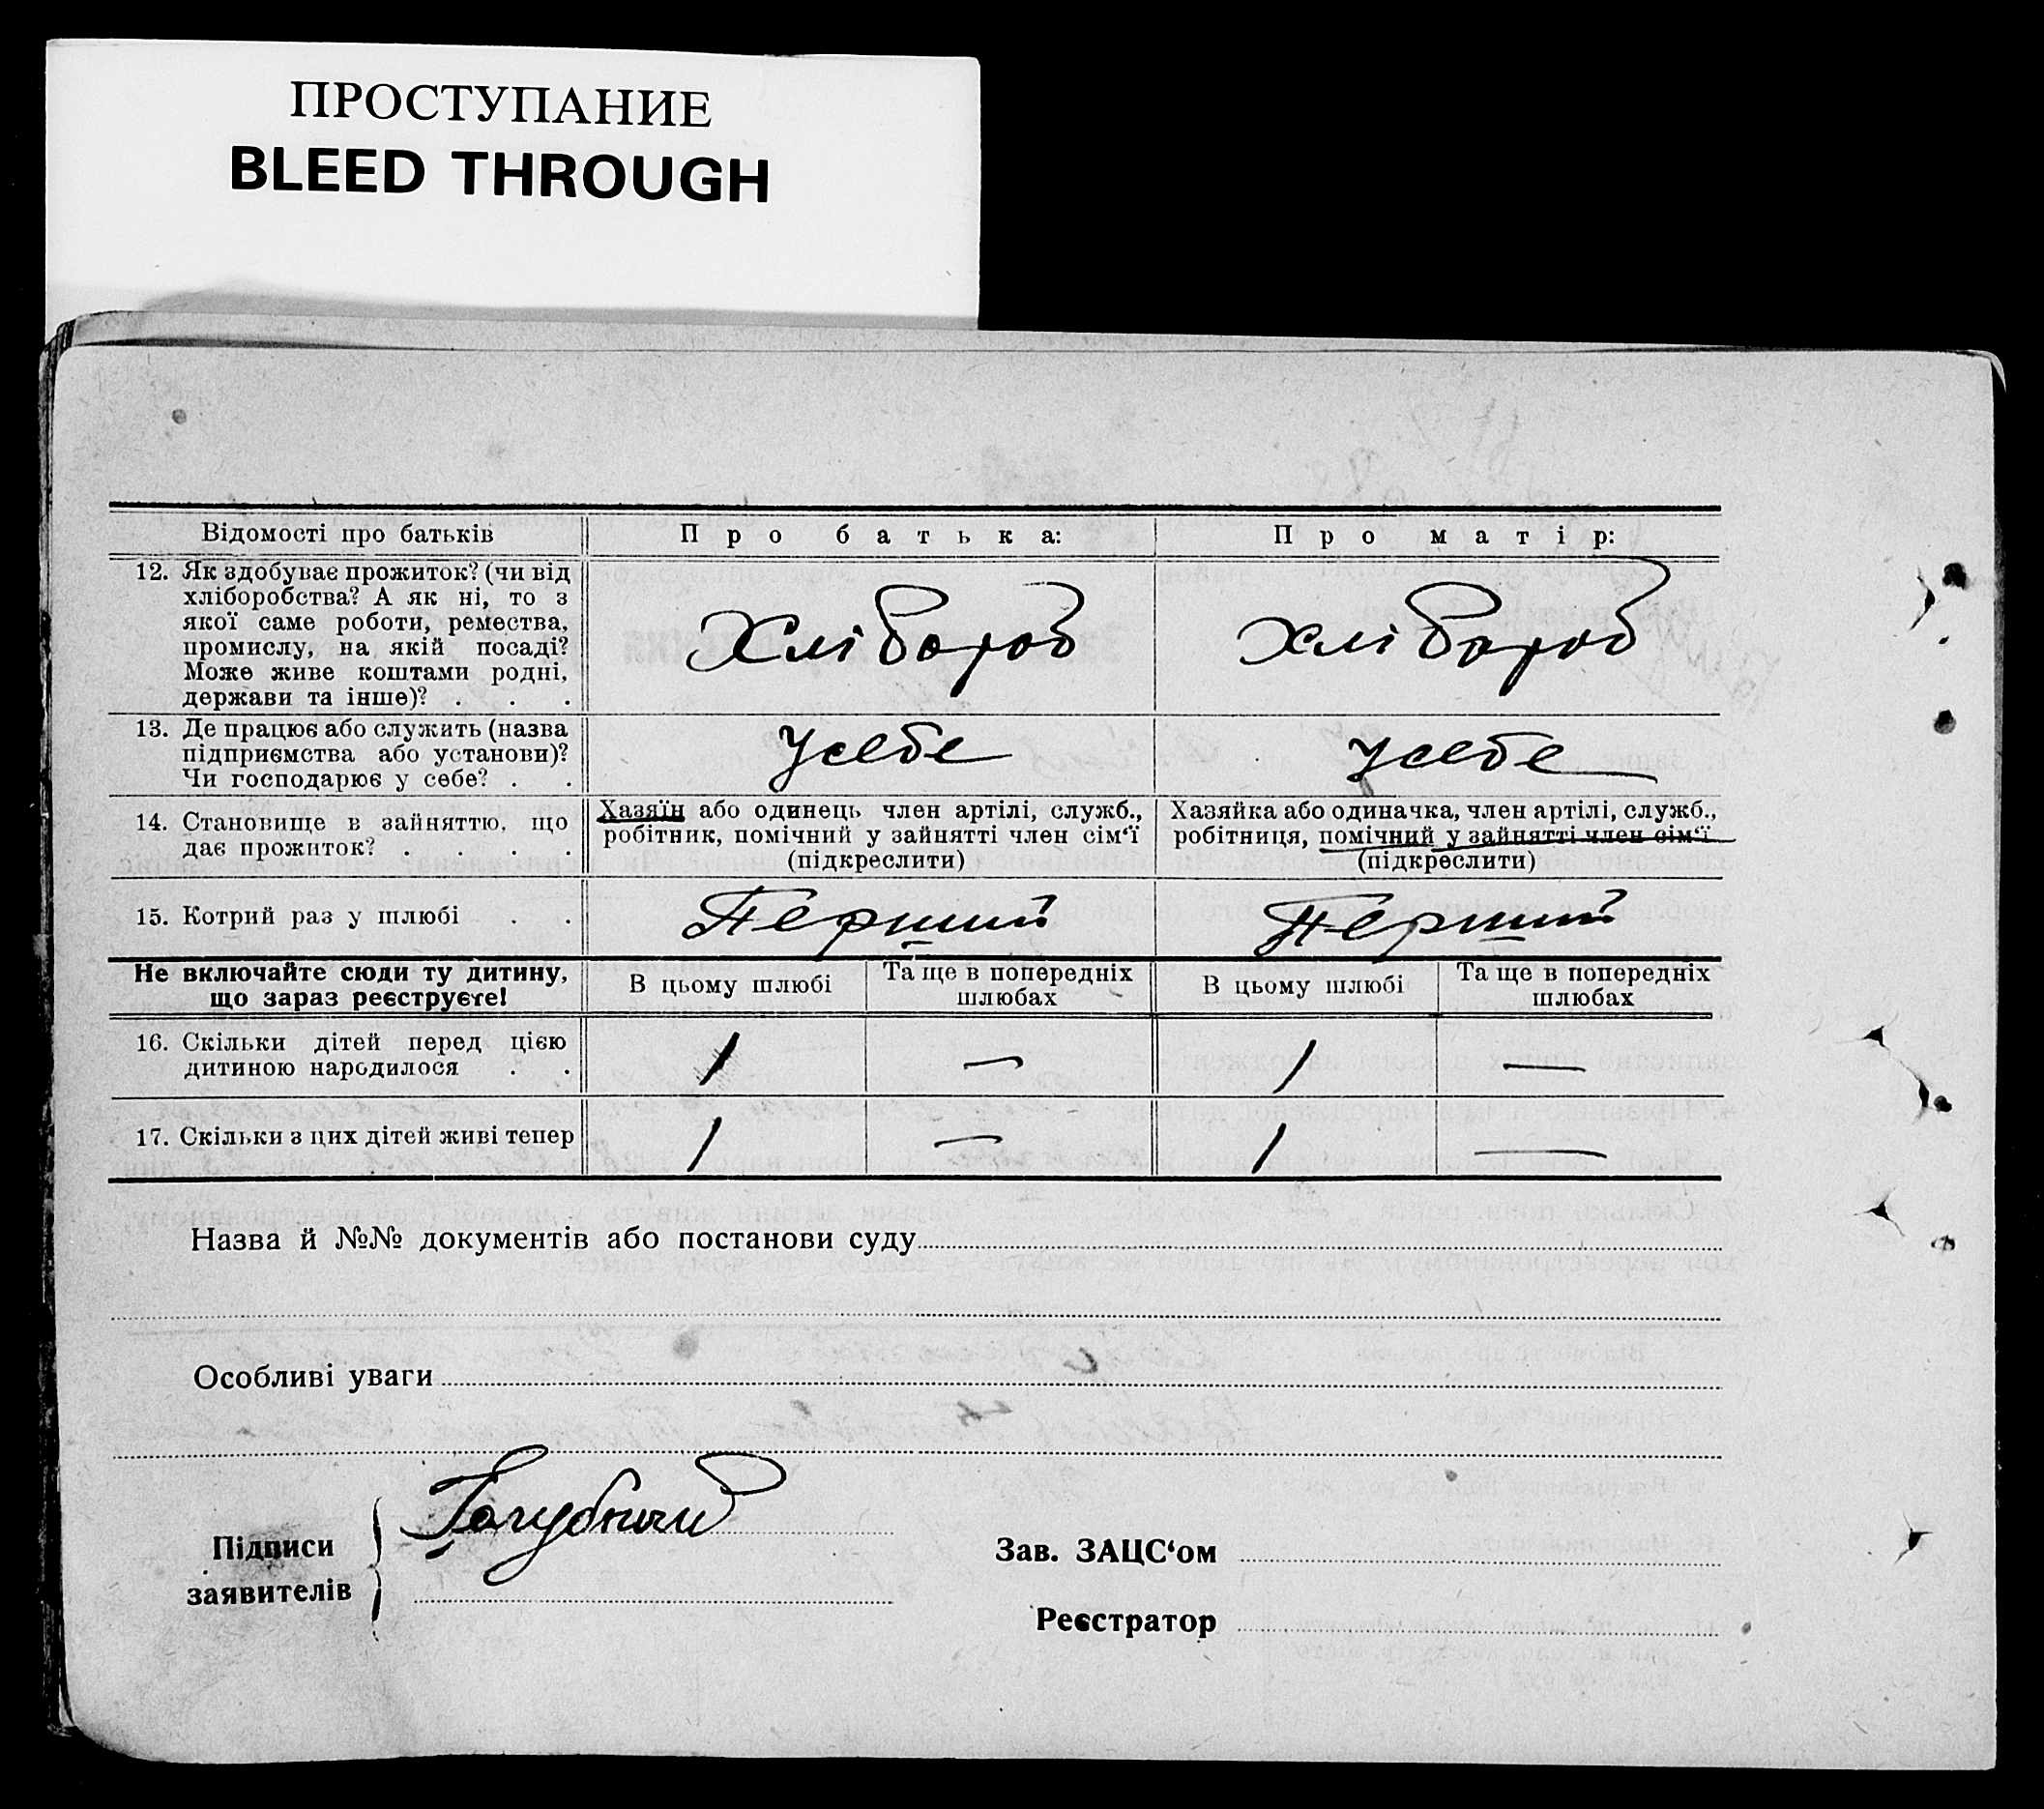 ПРОСТУПАНИЕ
BLEED THROUGH
Відомості про батьків
Про батька:
Про матір:
12. Як здобуває прожиток? (чи від
хліборобства? А як ні, то з
якої саме роботи, ремества,
промислу, на якій посаді?
Може живе коштами родні,
держави та інше)? . . .
Хлібороб
Хлібороб
13. Де працює або служить (назва
підприємства або установи)?
Чи господарює у себе? . .
У себе
У себе
14. Становище в зайняттю, що
дає прожиток? . . . .
Хазяїн або одинець член артілі, служб.,
робітник, помічний у зайнятті член сім‘ї
(підкреслити)
Хазяйка або одиначка, член артілі, служб.,
робітниця, помічний у зайнятті член сім‘ї
(підкреслити)
15. Котрий раз у шлюбі . .
Перший
Перший
Не включайте сюди ту дитину,
що зараз реєструєте!
В цьому шлюбі
Та ще в попередніх
шлюбах
В цьому шлюбі
Та ще в попередніх
шлюбах
16. Скільки дітей перед цією
дитиною народилося . .
1
—
1
—
17. Скільки з цих дітей живі тепер
1
—
1
—
Назва й №№ документів або постанови суду
Особливі уваги
Підписи
заявителів
Зав. ЗАЦС‘ом
Реєстратор